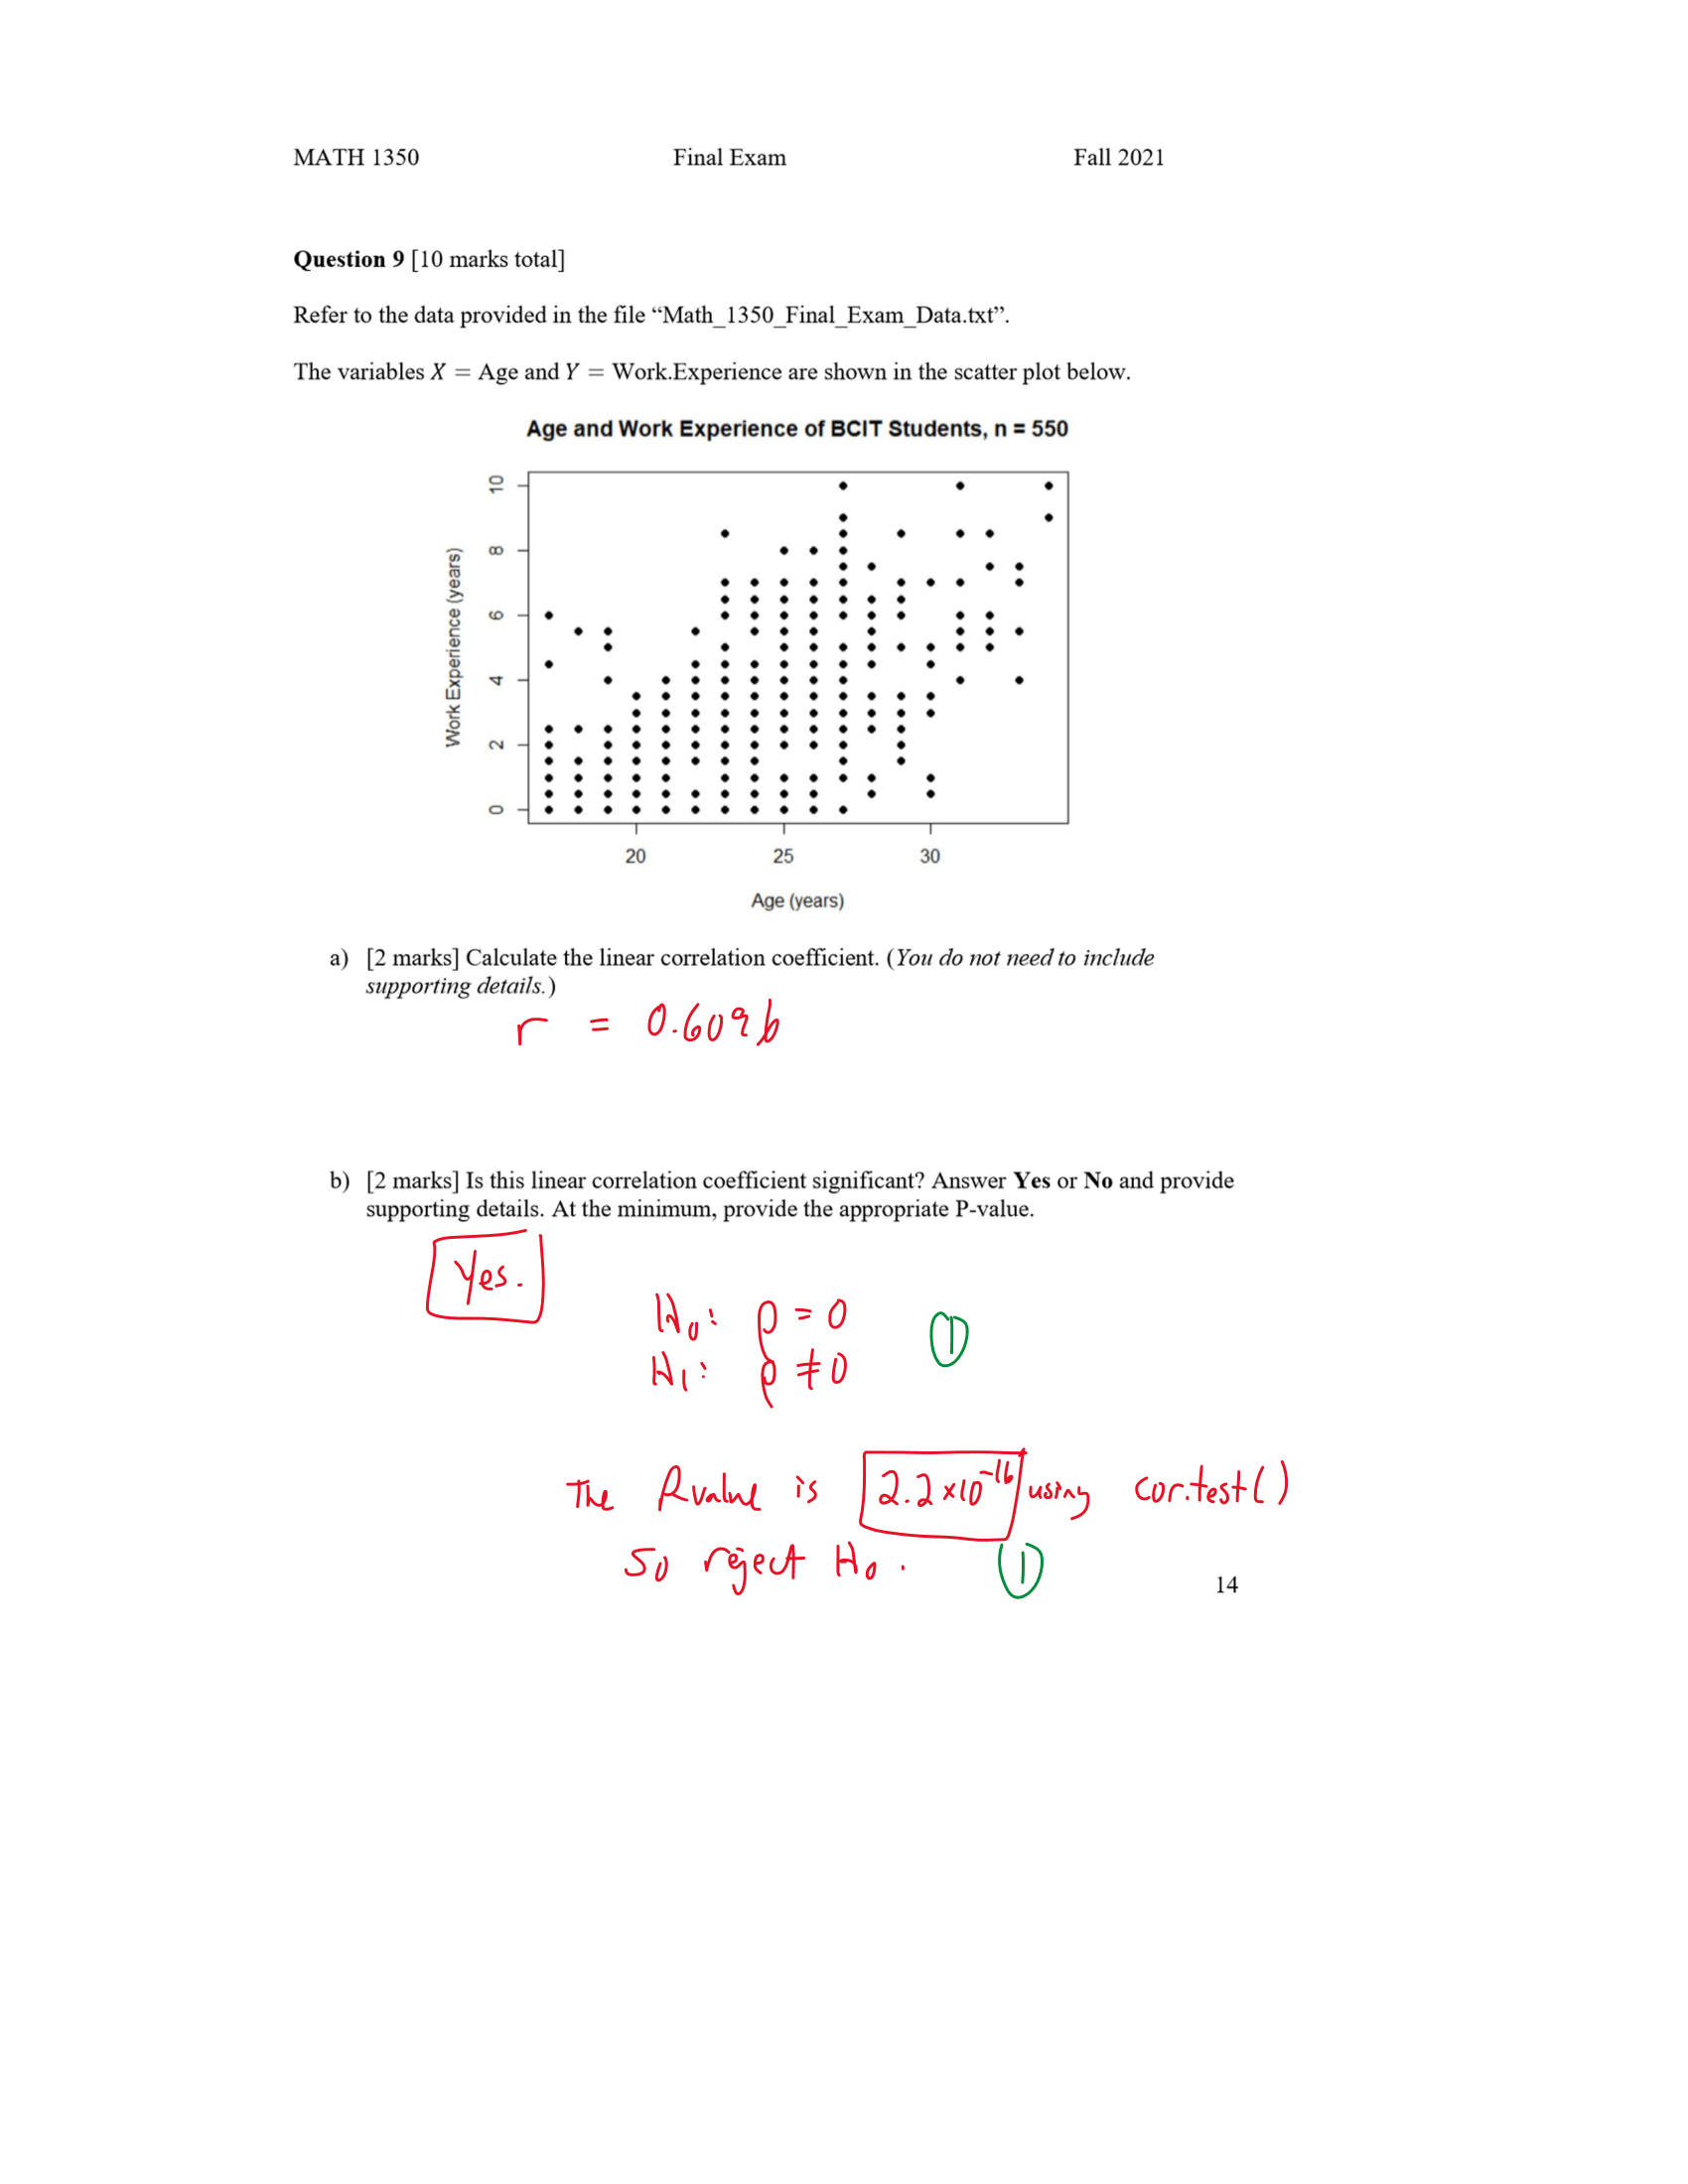 MATH 1350 Final Exam Fall 2021
Question 9 [10 marks total]
Refer to the data provided in the file “Math_1350_Final_Exam_Data.txt”.
The variables X = Age and Y = Work.Experience are shown in the scatter plot below.
Age and Work Experience of BCIT Students, n = 550
10
8
6
4
2
0
Work Experience (years)
20 25 30
Age (years)
a) [2 marks] Calculate the linear correlation coefficient. (You do not need to include
supporting details.)
r = 0.6096
b) [2 marks] Is this linear correlation coefficient significant? Answer Yes or No and provide
supporting details. At the minimum, provide the appropriate P-value.
Yes.
H₀: ρ = 0 ①
H₁: ρ ≠ 0
The P-value is 2.2 × 10⁻¹⁶ using cor.test()
So reject H₀. ①
14